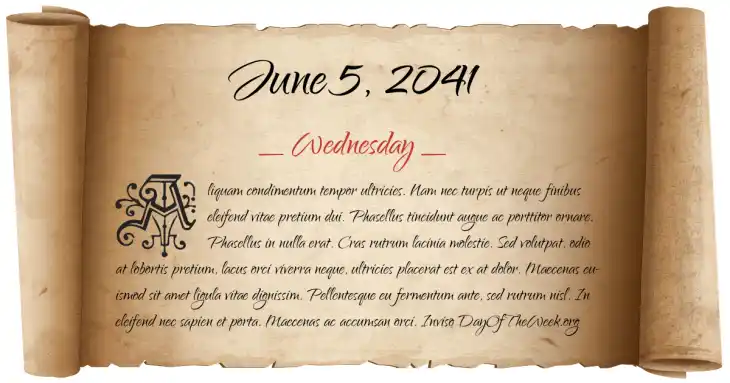 June 5, 2041
_ Wednesday _
Aliquam condimentum tempor ultricies. Nam nec turpis ut neque finibus
eleifend vitae pretium dui. Phasellus tincidunt augue ac porttitor ornare.
Phasellus in nulla erat. Cras rutrum lacinia molestie. Sed volutpat, odio
at lobortis pretium, lacus orci viverra neque, ultricies placerat est ex at dolor. Maecenas eu-
ismod sit amet ligula vitae dignissim. Pellentesque eu fermentum ante, sed rutrum nisl. In
eleifend nec sapien et porta. Maecenas ac accumsan orci. Inviso DayOfTheWeek.org